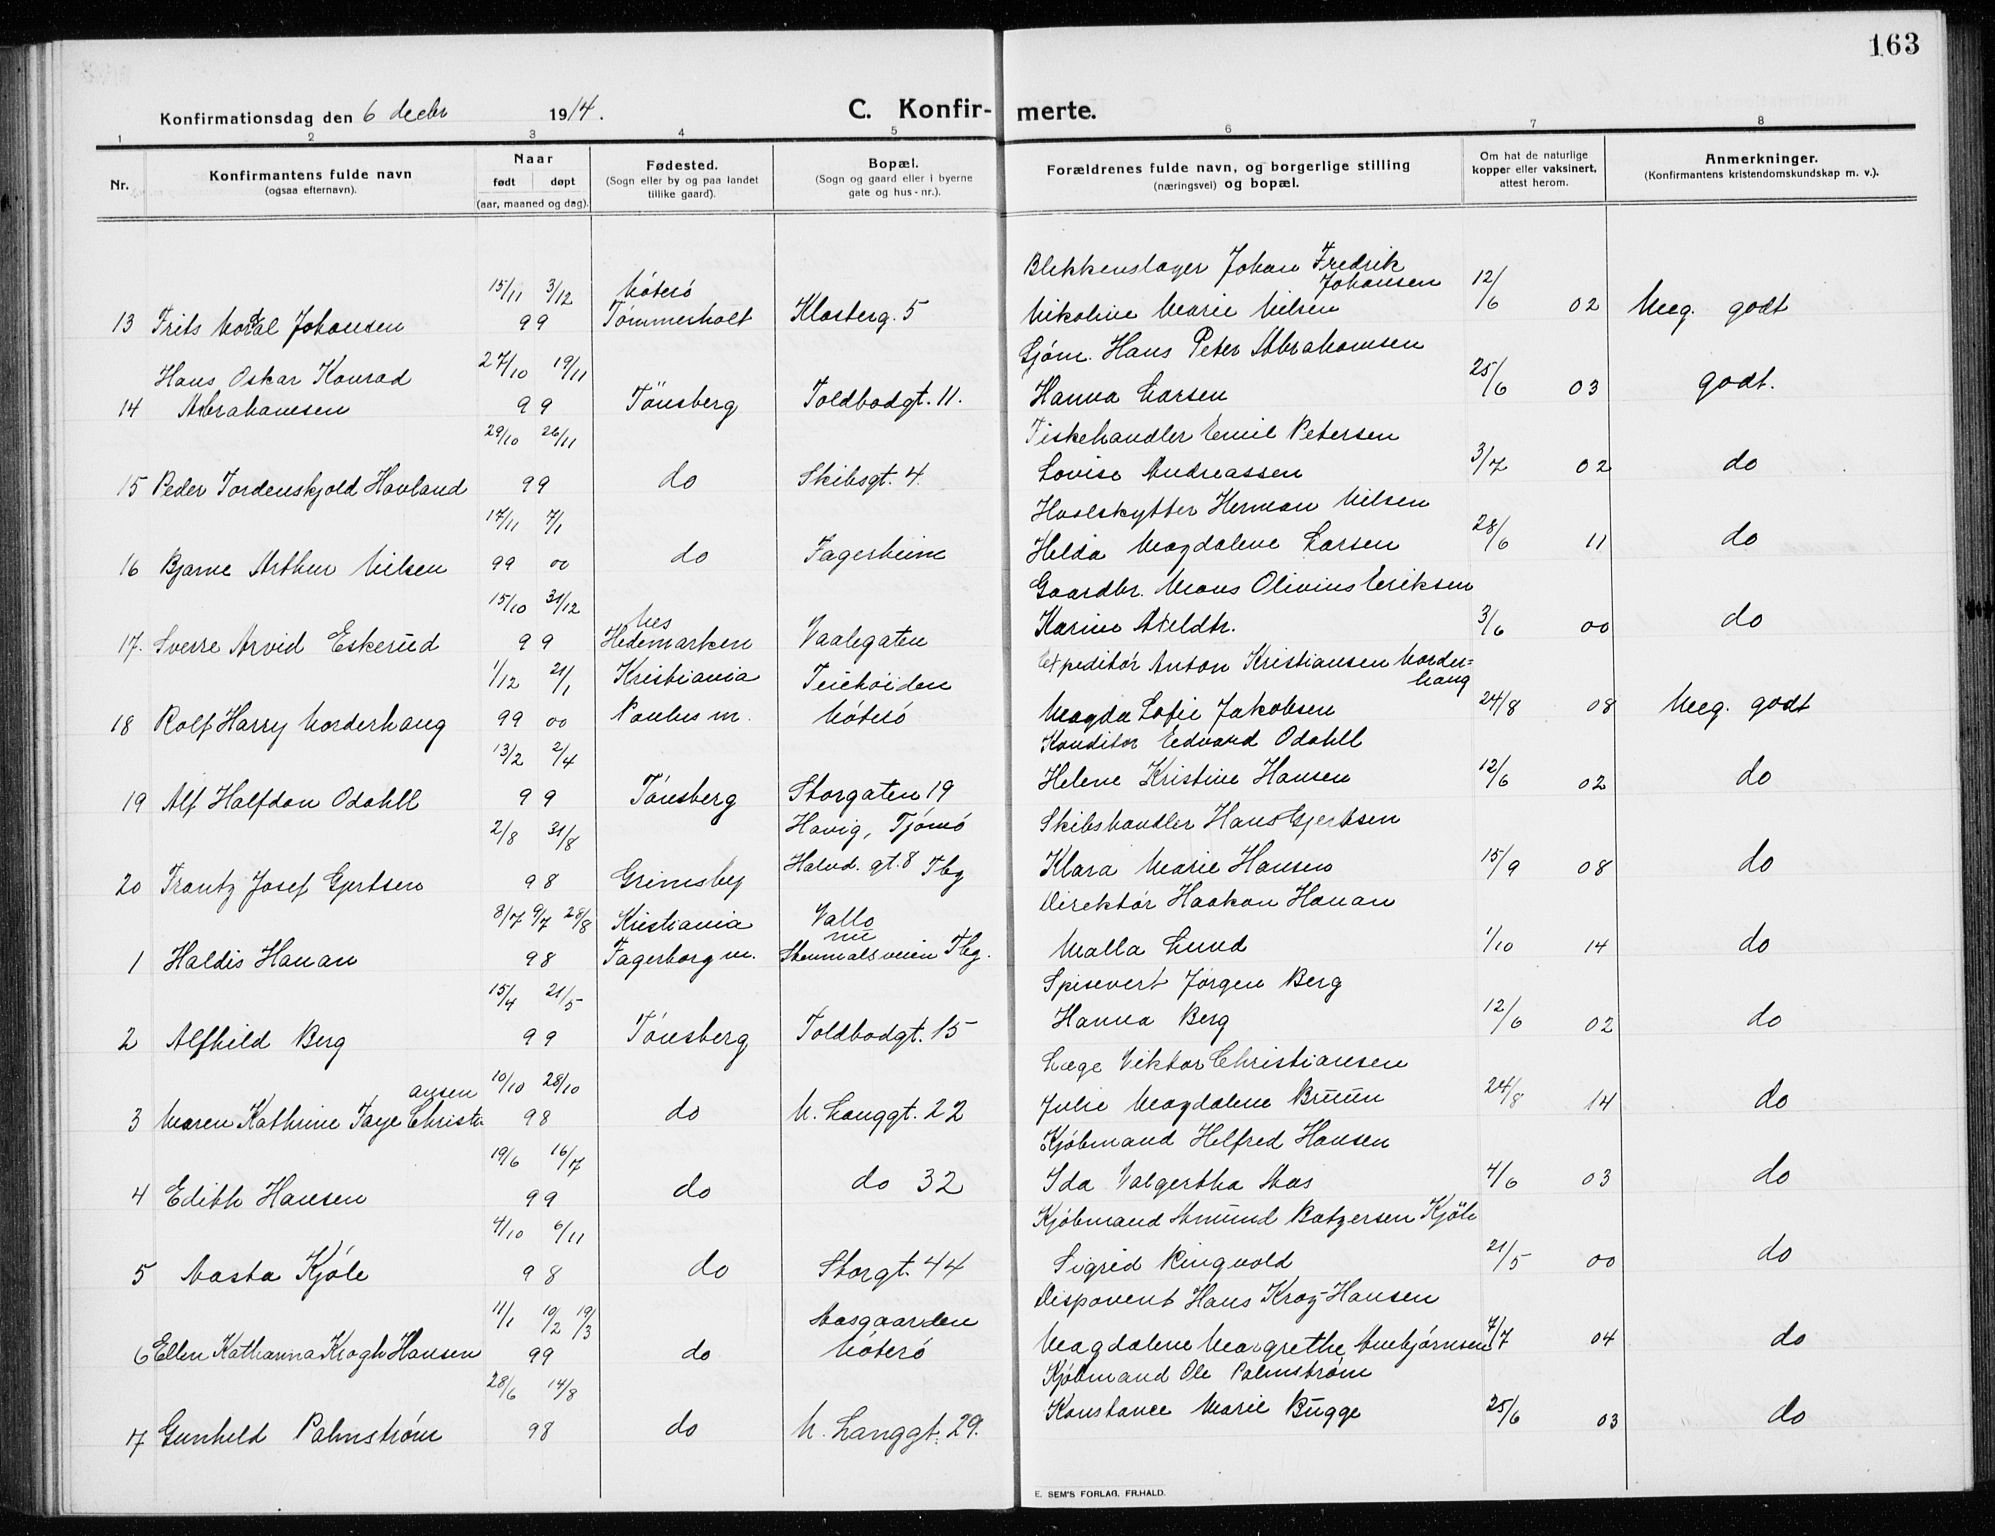 163
Konfirmationsdag den 6 decbr 1914.
C. Konfir- merte.
1 2 3 4 5 6 7 8
Nr.
Konfirmantens fulde navn
(ogsaa efternavn).
Naar
født døpt
(aar, maaned og dag).
Fødested.
(Sogn eller by og paa landet
tillike gaard).
Bopæl.
(Sogn og gaard eller i byerne
gate og hus-nr.).
Forældrenes fulde navn, og borgerlige stilling
(næringsvei) og bopæl.
Om hat de naturlige
kopper eller vaksinert,
attest herom.
Anmerkninger.
(Konfirmantens kristendomskundskap m. v.).
Blikkenslager Johan Fredrik
15/11 3/12 Nøterø Johansen 12/6
13 Frits Johansen 99 Tømmerholt Klosterg. 5 Nikoline Marie Nilsen 02 Meg. godt
Sjøm. Hans Peter Abrahamsen
Hans Oskar Konrad 27/10 19/11 25/6
14 Abrahamsen 99 Tönsberg Toldbodgt. 11. Hanna Larsen 03 godt.
29/10 26/11 Fiskehandler Emil Petersen
15 Peder Tordenskjold Havland 99 do Skibsgt. 4 Lovise Andreassen 3/7 02 do
17/11 7/1 Hvalskytter Herman Nilsen
16 Bjarne Arthur Nilsen 99 00 do Fagerheim Helda Magdalene Larsen 28/6 11 do
15/10 31/12 Nes Gaardbr. Mons Olivius Eriksen
17. Sverre Arvid Eskerud 99 Hedemarken Vaalegaten Karine Axeldtr. 3/6 00 do
1/12 21/1 Kristiania Teiehöiden Expeditör Anton Kristiansen Norder=
haug
18 Rolf Harry Norderhaug 99 00 Paulus m. Nøterø Magda Sofie Jakobsen 24/8 08 Meg. godt
13/2 2/4 Konditor Edvard Odahll
19 Alf Halfdan Odahll 99 Tönsberg Storgaten 19 Helene Kristine Hansen 12/6 02 do
2/8 31/8 Havig, Tjømø Skibshandler Hans Gjertsen
20 Frantz Josef Gjertsen 98 Grimsby Halvd. gt. 8 Tbg Klara Marie Hansen 15/9 08 do
8/7 9/7 28/8 Kristiania Vallo Direktör Haakon Hauan
nu
1 Haldis Hauan 98 Fagerborg m. Stenmalsveien Tbg. Malla Lund 1/10 14 do
15/4 21/5 Spisevert Jørgen Berg
2 Alfhild Berg 99 Tönsberg Toldbodgt. 15 Hanna Berg 12/6 02 do
10/10 28/10 Læge Viktor Christiansen
ansen
3 Maren Kathrine Faye Christi 98 do N. Langgt. 22 Julie Magdalene Bruun 24/8 14 do
19/6 16/7 Kjøbmand Helfred Hansen
4 Edith Hansen 99 do do 32 Ida Valgertha Aas 4/6 03 do
4/10 6/11 Kjøbmand Amund Batzersen Kjöle
5 Aasta Kjöle 98 do Storgt. 44 Sigrid Ringvold 21/5 00 do
11/1 10/2 19/3 Aasgaarden Disponent Hans Krog-Hansen
6 Ellen Katharina Krogh Hansen 99 do Nøterø Magdalene Margrethe Anebjørnsen 7/7 04 do
28/6 14/8 Kjøbmand Ole Palmstrøm
7 Gunhild Palmstrøm 98 do N. Langgt. 29. Konstance Marie Bugge 25/6 03 do
E. SEM'S FORLAG, FR.HALD.